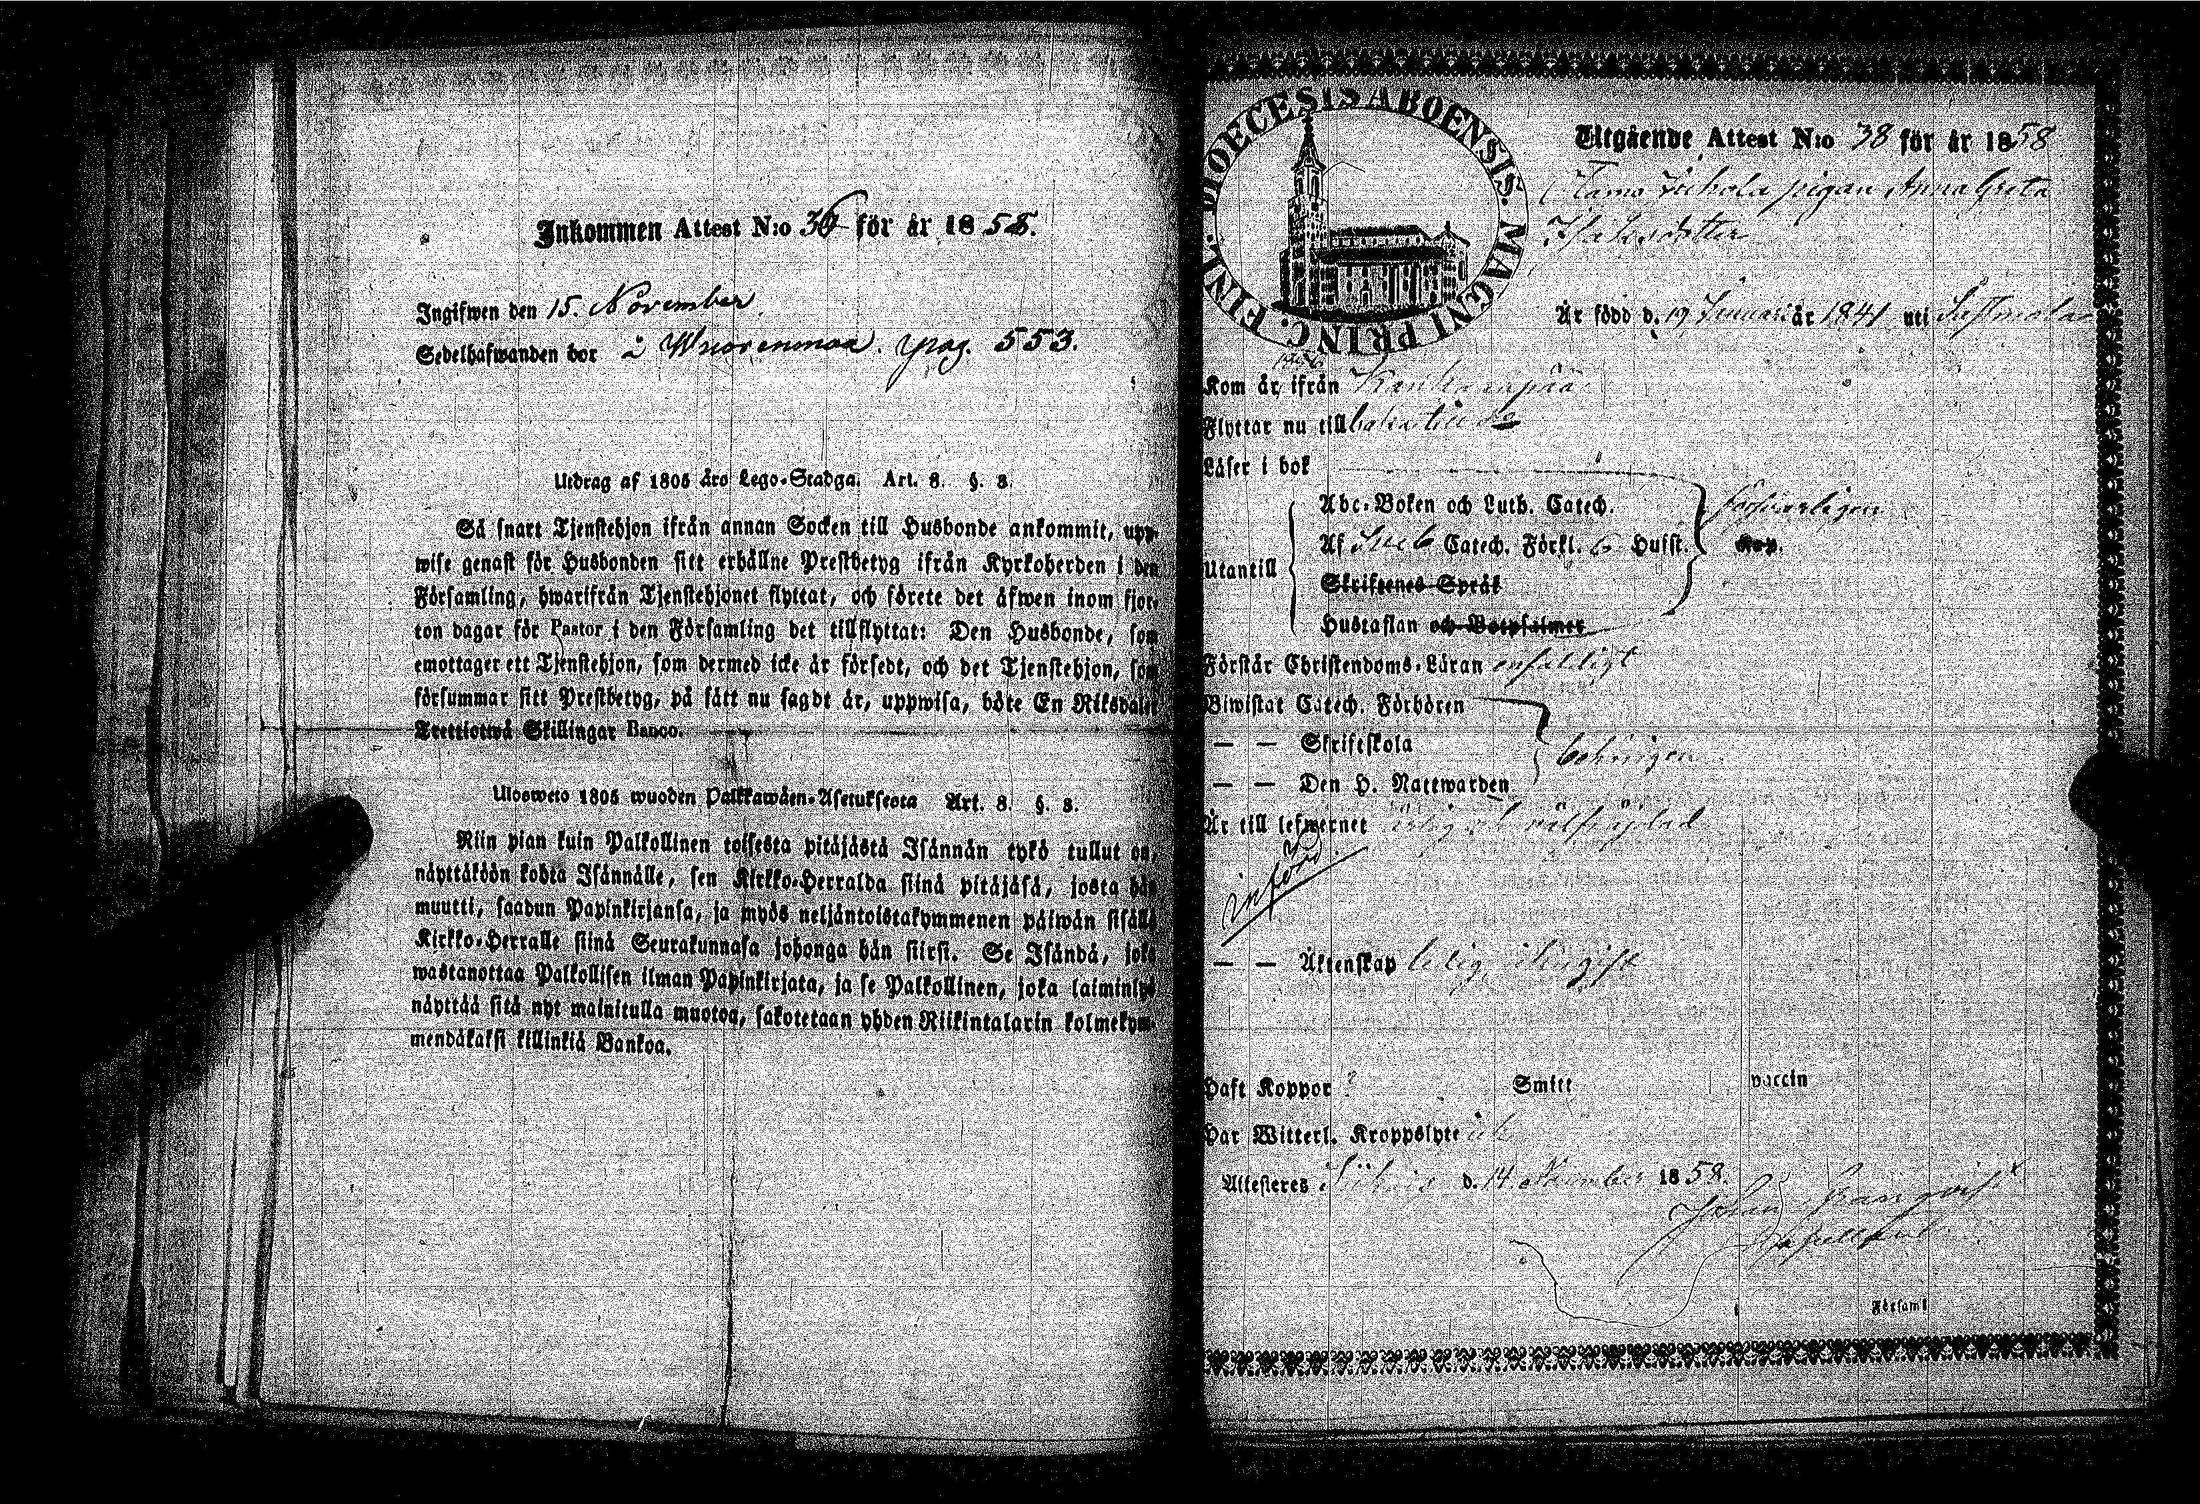 Inkommen Attest N:o 36 för år 1858.
Ingifwen den 15. November
Sedelhafwanden bor i Wuorenmaa. pag. 553.
Utdrag af 1805 års Lego-Stadga. Art. 8. §. 8.
Så snart Tjenstehjon ifrån annan Socken till Husbonde ankommit, upp-
wise genast för Husbonden sitt erhållne Prestbetyg ifrån Kyrkoherden i den
Församling, hwarifrån Tjenstehjonet flyttat, och förete det äfwen inom fjor-
ton dagar för Pastor i den Församling det tillflyttat: Den Husbonde, som
emottager ett Tjenstehjon, som dermed icke är försedt, och det Tjenstehjon, som
försummar sitt Prestbetyg, på sätt nu sagdt är, uppwisa, böte En Riksdaler
Trettiotwå Skillingar Banco.
Ulosweto 1805 wuoden Palkkawäen-Asetuksesta Art. 8. §. 8.
Niin pian kuin Palkollinen toisesta pitäjästä Isännän tykö tullut on,
näyttäköön kohta Isännälle, sen Kirkko-Herralda siinä pitäjäsä, josta hän
muutti, saadun Papinkirjansa, ja myös neljäntoistakymmenen päiwän sisällä
Kirkko-Herralle siinä Seurakunnasa johonga hän siirsi. Se Isändä, joka
wastanottaa Palkollisen ilman Papinkirjata, ja se Palkollinen, joka laiminlyö
näyttää sitä nyt mainitulla muotoa, sakotetaan yhden Riikintalarin kolmekym-
mendäkaksi killinkiä Bankoa.
DIOECESIS ABOENSIS. MAGNI PRINC. FINL.
Utgående Attest N:o 38 för år 1858
pigan Anna Greta
Är född d. 19 Januari år 1841 uti
Kom år ifrån
Flyttar nu till
Läser i bok
Abc-Boken och Luth. Catech. försvarligen
Af Sveb Catech. Förkl. Hufst.
Utantill
Skriftenes Språk
Hustaflan och Botpsalmer
Förstår Christendoms-Läran enfaldigt
Biwistat Catech. Förhören
— — Skriftskola behörigen
— — Den H. Nattwarden
Är till lefwernet ärlig och välfräjdad
införd
— — Äktenskap ledig, ogift
Haft Koppor ? Smitt vaccin
Har Witterl. Kroppslyte
Attesteres d. 14 November 1858.
Johan
Församl